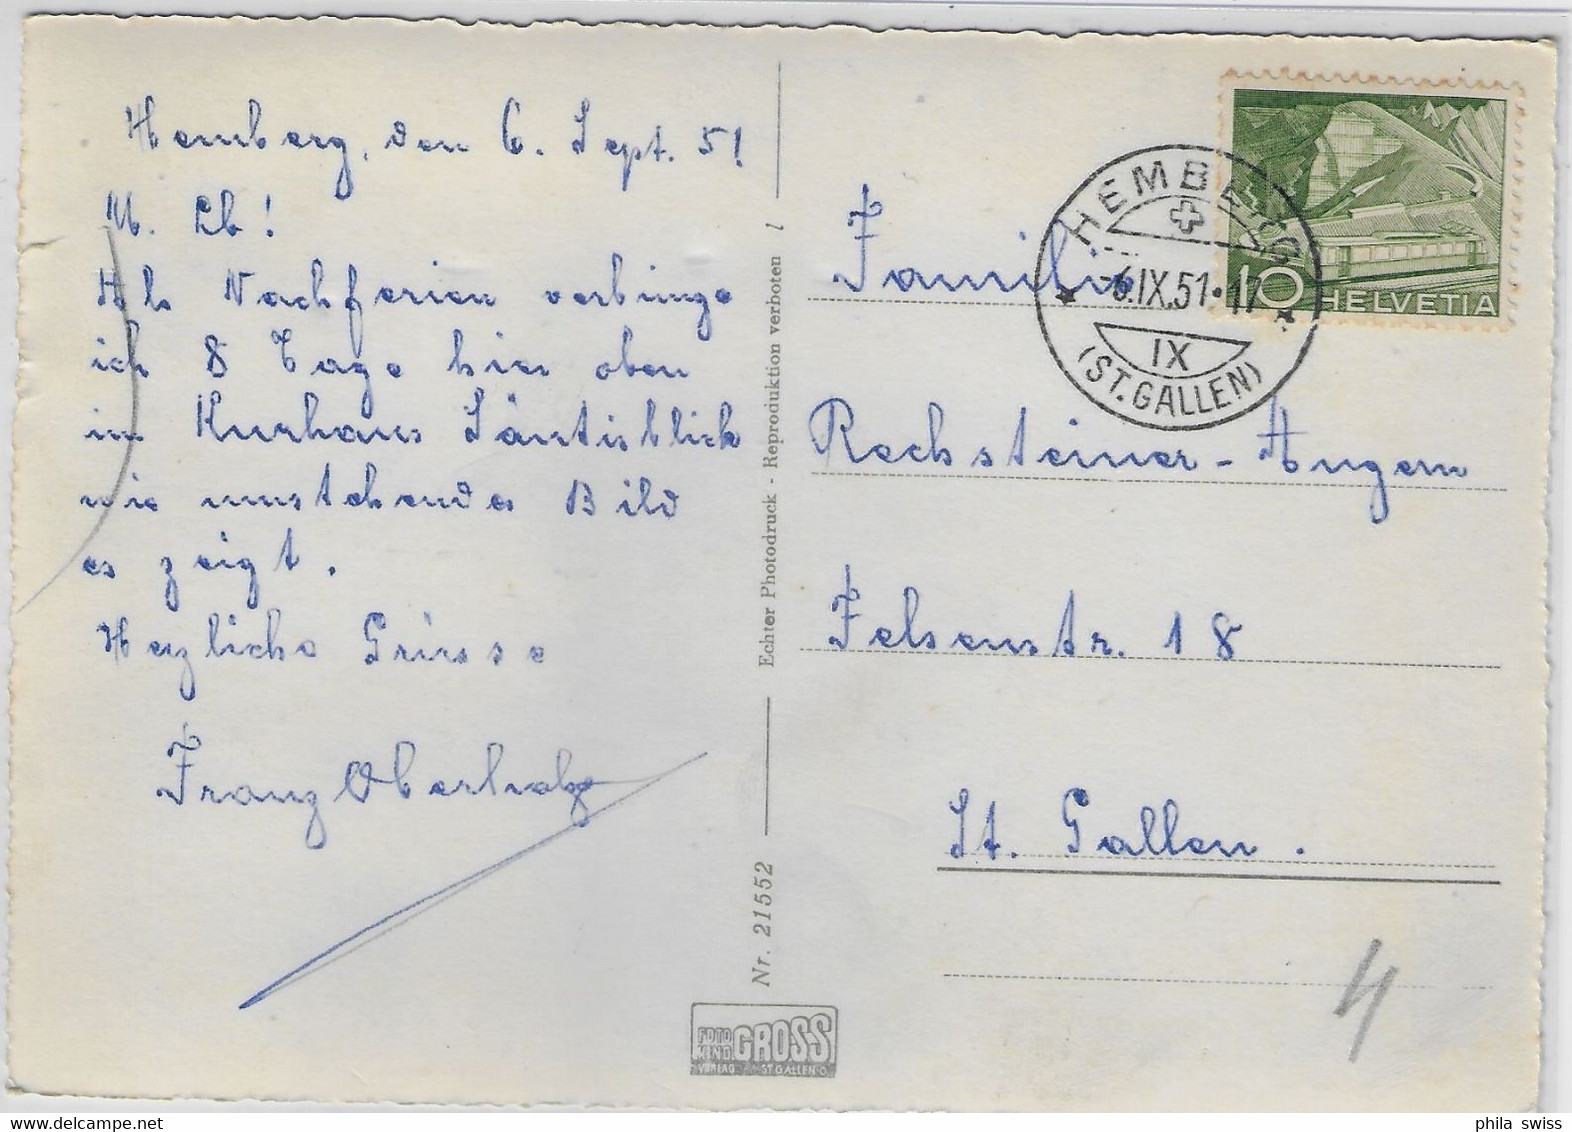 Hemberg, den 6. Sept. 51
M. Lb!
Als Nachferien verbringe
ich 8 Tage hier oben
im Kurhaus Säntisblick
wie umstehendes Bild
es zeigt.
Herzliche Grüsse
Franz Oberholz
Echter Photodruck - Reproduktion verboten
Nr. 21552
FOTO GROSS
VERLAG ST. GALLEN O.
HEMBERG
-6.IX.51.17
IX
(ST. GALLEN)
10 HELVETIA
Familie
Rechsteiner-Angern
Felsenstr. 18
St. Gallen.
4
phila swiss